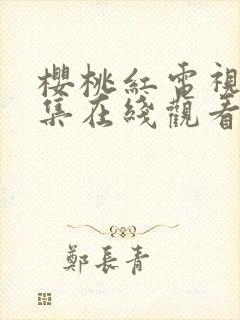 櫻桃紅電視
集在綫觀看
鄭長青